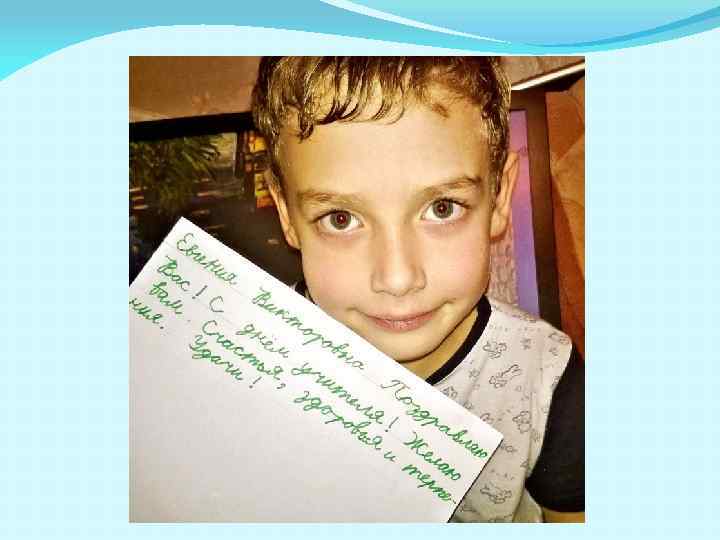 Евгения Викторовна Поздравляю
Вас! С днём учителя! Желаю
вам. Счастья, здоровья и терпе-
ния. Удачи!